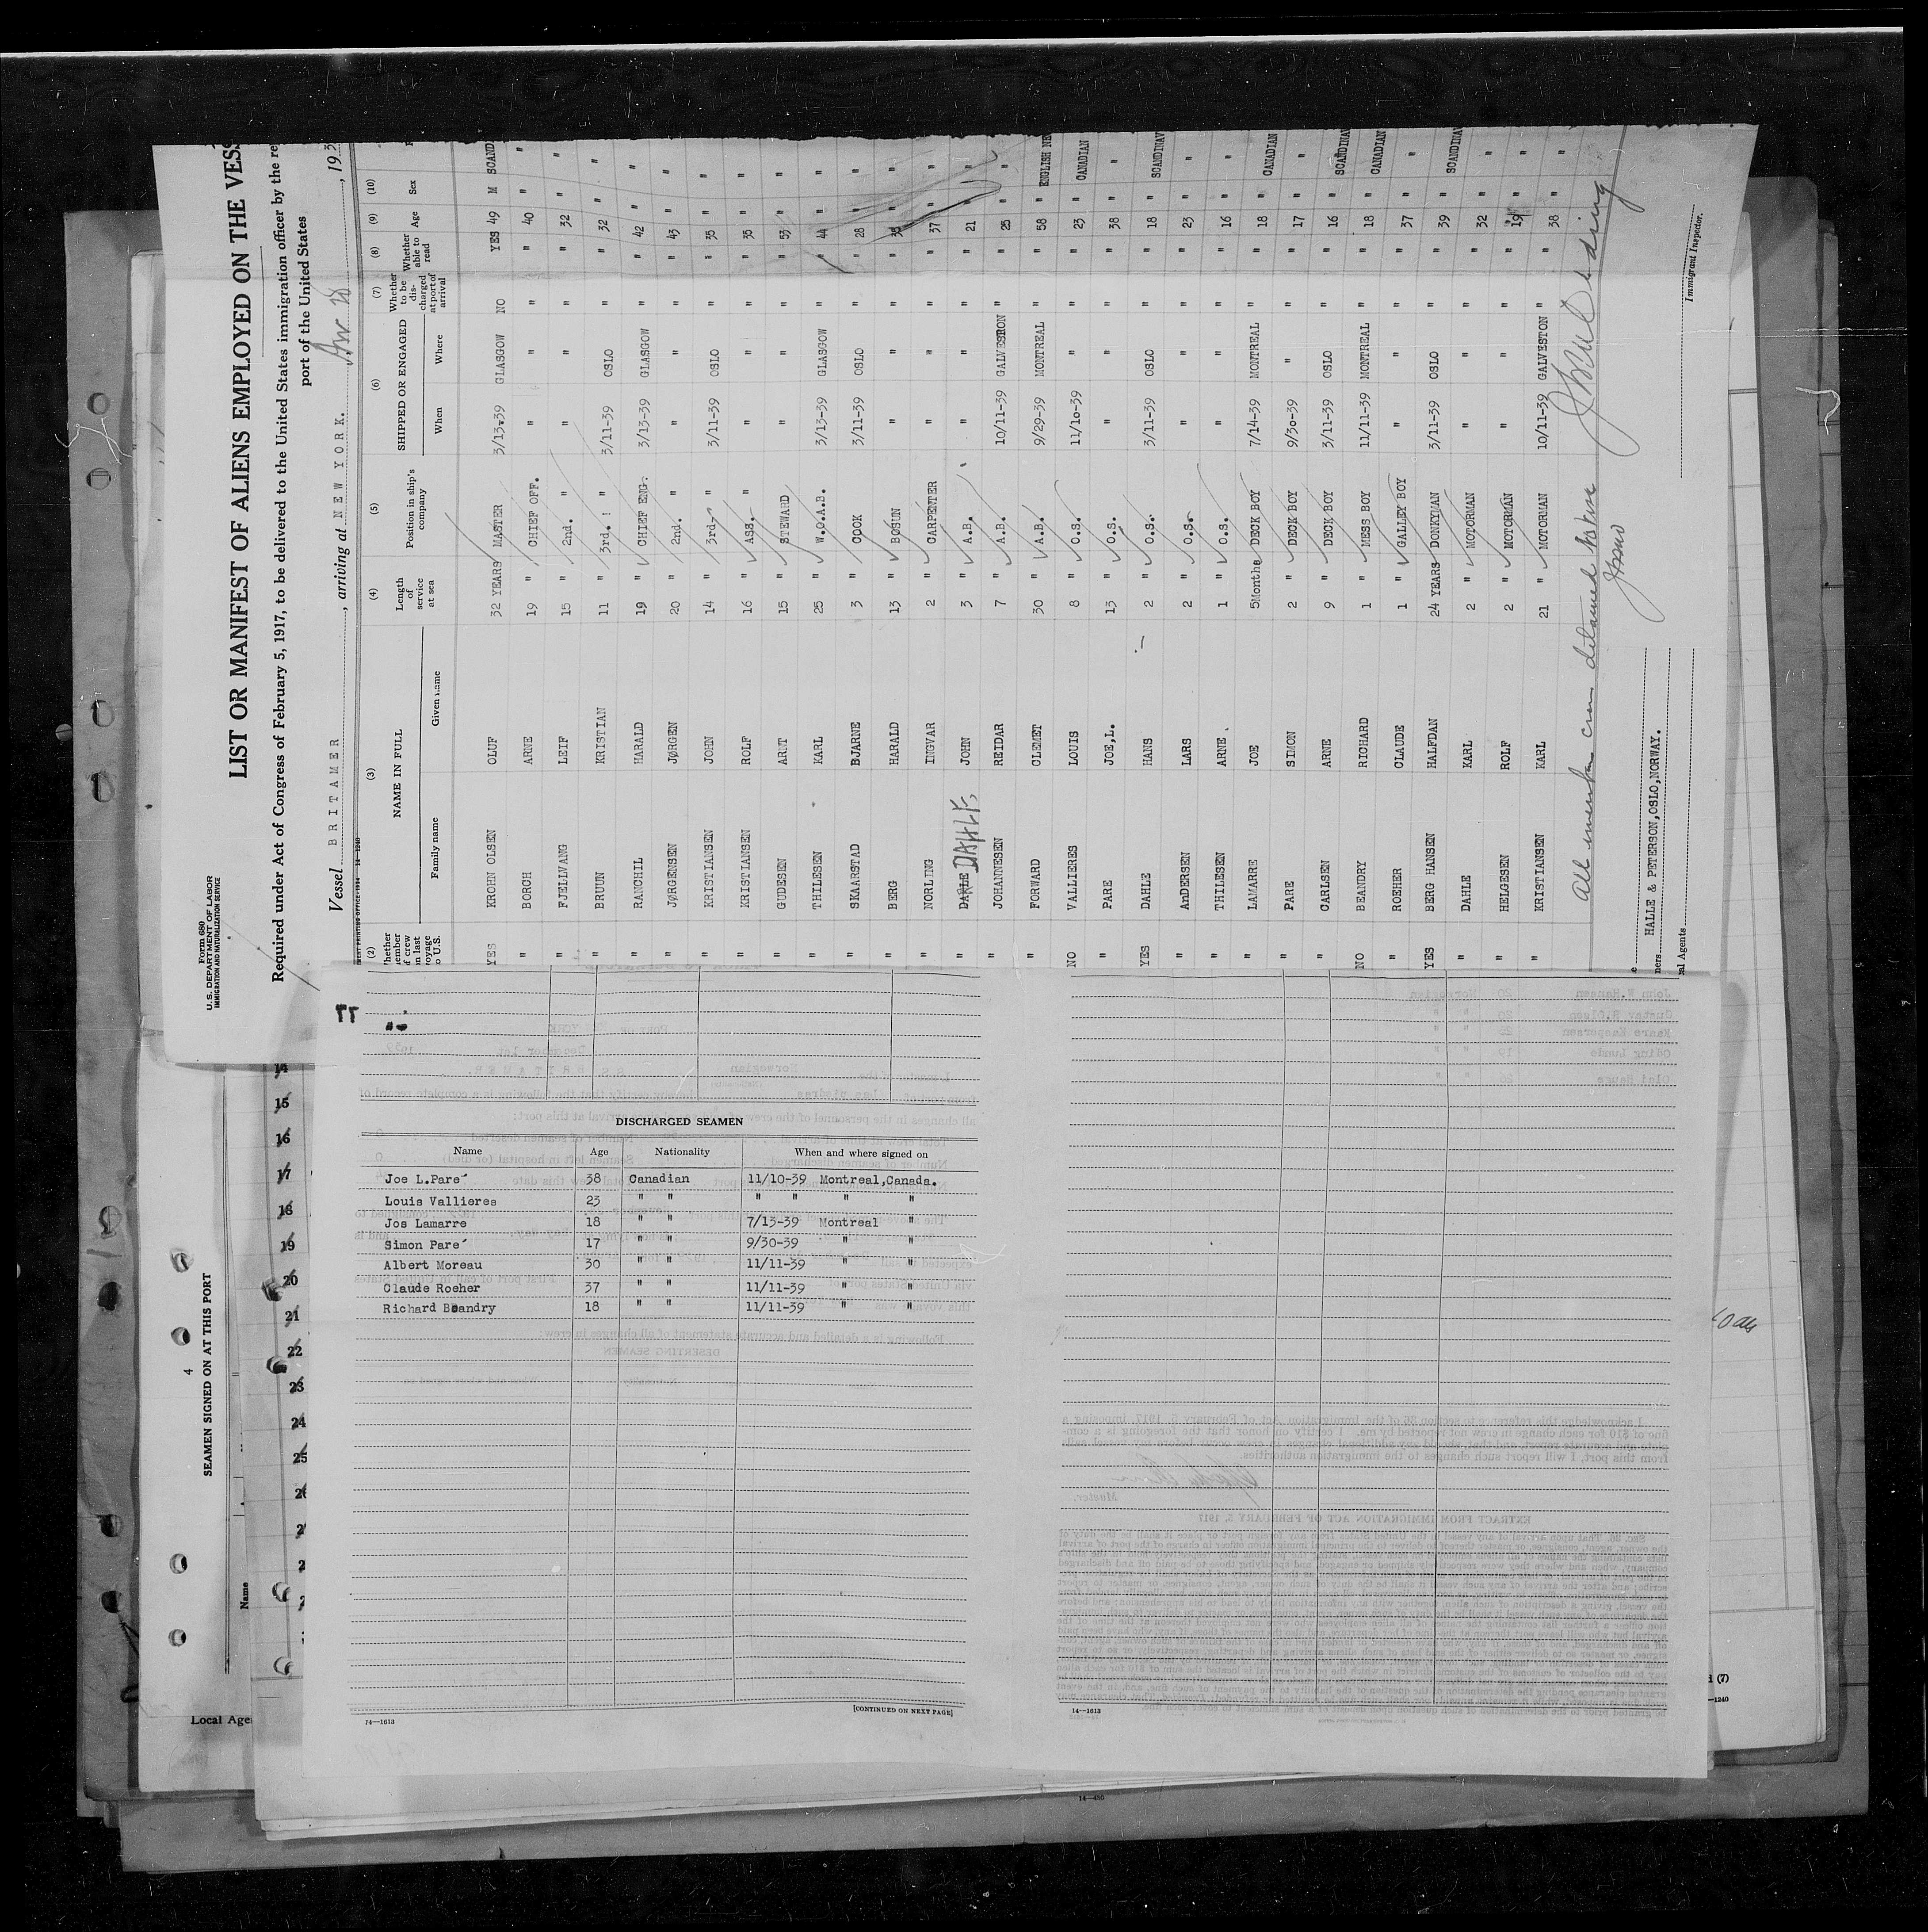 Form 680
U.S. DEPARTMENT OF LABOR
IMMIGRATION AND NATURALIZATION SERVICE
LIST OR MANIFEST OF ALIENS EMPLOYED ON THE VESS
Required under Act of Congress of February 5, 1917, to be delivered to the United States immigration officer by the re
port of the United States
Vessel BRITAMER, arriving at NEW YORK., 193
(2) (3) (4) (5) (6) (7) (8) (9) (10)
NAME IN FULL Length of service at sea Position in ship's company SHIPPED OR ENGAGED Whether to be discharged at port of arrival Whether able to read Age Sex
Family name Given name When Where
YES KROHN OLSEN OLUF 32 YEARS MASTER 3/13-39 GLASGOW NO YES 49 M SCAND
" BORCH ARNE 19 " CHIEF OFF. " " " " 40 " "
" FJELLVANG LEIF 15 " 2nd. " " " " " 32 " "
" BRUUN KRISTIAN 11 " 3rd. : " 3/11-39 OSLO " " 32 " "
" RANCHIL HARALD 19 " CHIEF ENG. 3/13-39 GLASGOW " " 42 " "
" JØRGENSEN JØRGEN 20 " 2nd. " " " " " 43 " "
" KRISTIANSEN JOHN 14 " 3rd. " 3/11-39 OSLO " " 35 " "
" KRISTIANSEN ROLF 16 " ASS. " " " " " 35 " "
" GUDESEN ARNT 15 " STEWARD " " " " 53 " "
" THILESEN KARL 25 " W.O.A.B. 3/13-39 GLASGOW " " 44 " "
" SKAARSTAD BJARNE 3 " COOK 3/11-39 OSLO " " 28 " "
" BERG HARALD 13 " BOSUN " " " " " "
" NORLING INGVAR 2 " CARPENTER " " " " 37 " "
" DAHLE JOHN 3 " A.B. " " " " 21 " "
" JOHANNESEN REIDAR 7 " A.B. 10/11-39 " " 25 " "
" FORWARD CLEMET 30 " A.B. 9/29-39 MONTREAL " " 58 " ENGLISH NE
NO VALLIERES LOUIS 8 " O.S. 11/10-39 " " " 23 " CANADIAN
" PARE JOE,L. 13 " O.S. " " " " 38 " "
YES DAHLE HANS 2 " O.S. 3/11-39 OSLO " " 18 " SCANDINAV
" ANDERSEN LARS 2 " O.S. " " " " 23 " "
" THILESEN ARNE 1 " O.S. " " " " 16 " "
" LAMARRE JOE 5Months DECK BOY 7/14-39 MONTREAL " " 18 " CANADIAN
" PARE SIMON 2 " DECK BOY 9/30-39 " " " 17 " "
" CARLSEN ARNE 9 " DECK BOY 3/11-39 OSLO " " 16 " SCANDINAV
NO BEANDRY RICHARD 1 " MESS BOY 11/11-39 MONTREAL " " 18 " CANADIAN
" ROEHER CLAUDE 1 " GALLEY BOY " " " " 37 " "
YES BERG HANSEN HALFDAN 24 YEARS DONKYMAN 3/11-39 OSLO " " 39 " SCANDINAV
" DAHLE KARL 2 " MOTORMAN " " " " 32 " "
" HELGESEN ROLF 2 " MOTORMAN " " " " 19 " "
" KRISTIANSEN KARL 21 " MOTORMAN 10/11-39 GALVESTON " " 38 " "
All members crew detained
HALLE & PETERSON,OSLO,NORWAY.
Immigrant Inspector.
77
DISCHARGED SEAMEN
Name Age Nationality When and where signed on
Joe L.Pare´ 38 Canadian 11/10-39 Montreal,Canada.
Louis Vallieres 23 " " " " " "
Jos Lamarre 18 " " 7/13-39 Montreal "
Simon Pare´ 17 " " 9/30-39 " "
Albert Moreau 30 " " 11/11-39 " "
Claude Roeher 37 " " 11/11-39 " "
Richard Beandry 18 " " 11/11-39 " "
[CONTINUED ON NEXT PAGE]
14—1613
14—1613
4
SEAMEN SIGNED ON AT THIS PORT
Name
14
15
16
17
18
19
20
21
22
23
24
25
Local Age
(7)
—1240